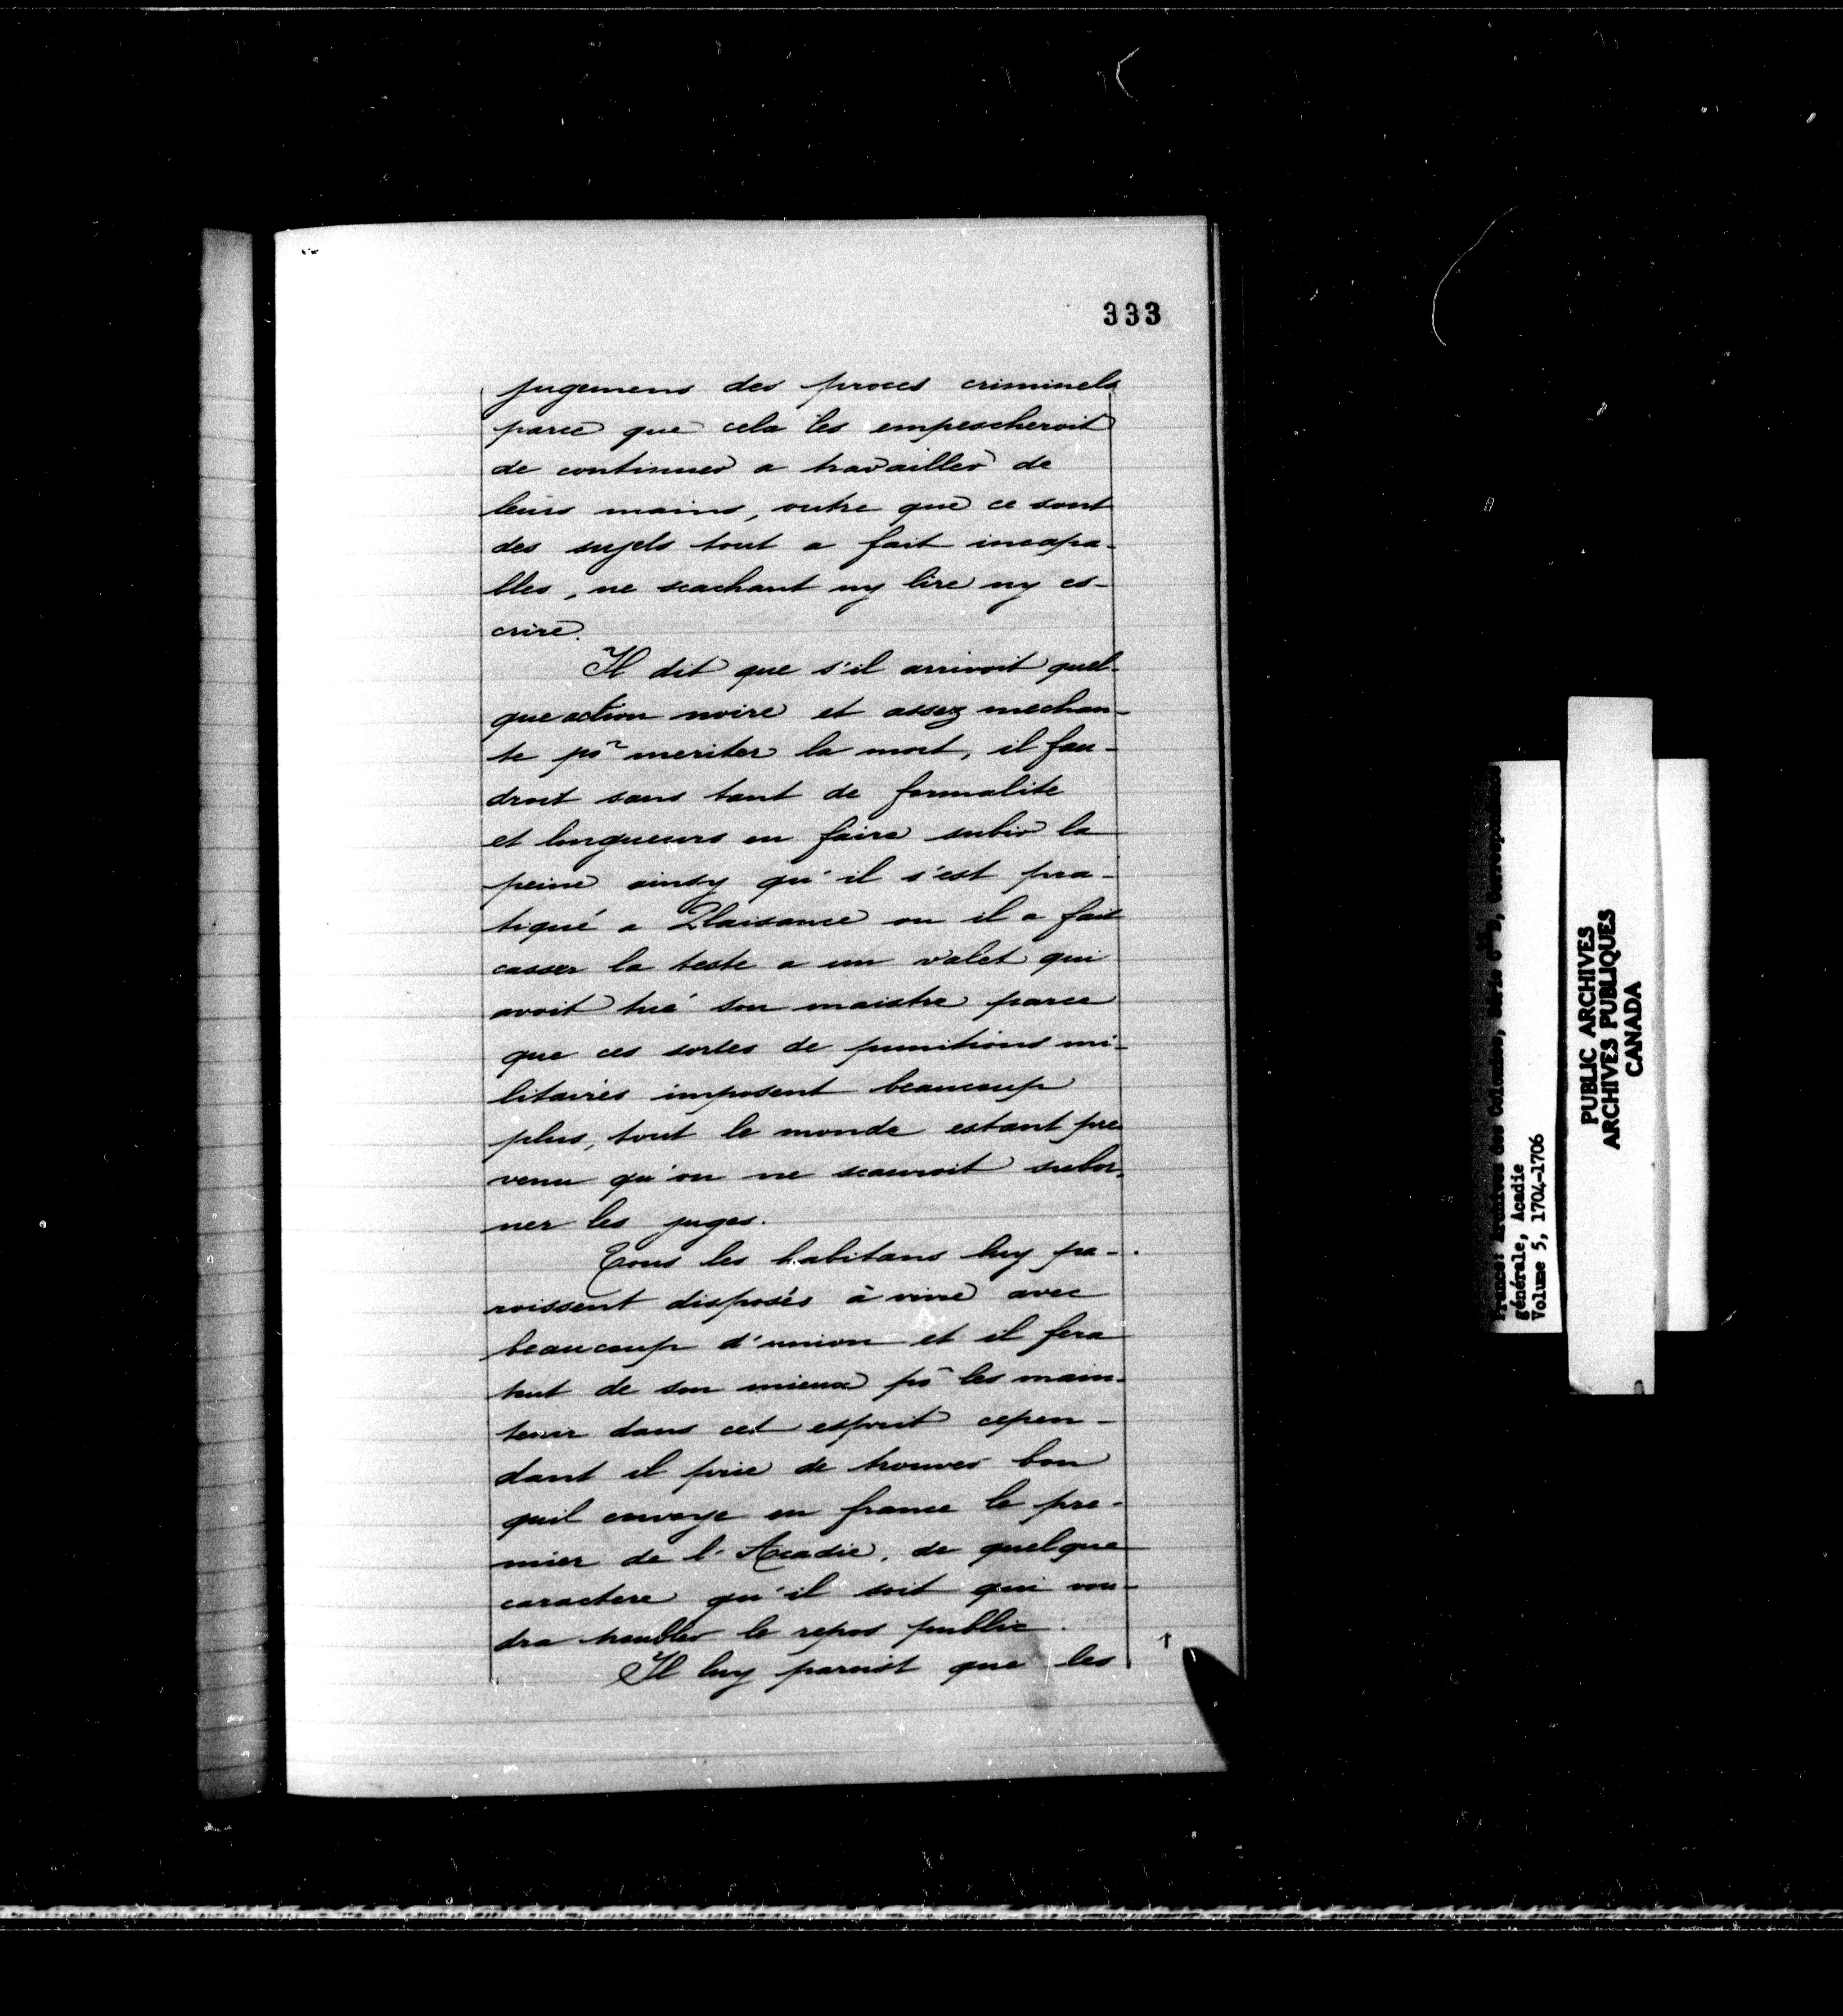 333
jugemens des proces criminels
parce que cela les empescheroit
de continuer a travailler de
leurs mains, outre que ce sont
des sujets tout a fait incapa-
bles, ne scachant ny lire ny es-
crire.
Il dit que s'il arrivoit quel-
que action noire et assez mechan-
te pr meriter la mort, il fau-
droit sans tant de formalite
et longueurs en faire subir la
peine ainsy qu'il s'est pra-
tiqué a Plaisance ou il a fait
casser la teste a un valet qui
avoit tué son maistre parce
que ces sortes de punitions mi-
litaires imposent beaucoup
plus, tout le monde estant pre
venu qu'on ne scauroit subor-
ner les juges.
Tous les habitans luy pa-
roissent disposés à vivre avec
beaucoup d'union et il fera
tout de son mieux pr les main-
tenir dans cet esprit cepen-
dant il prie de trouver bon
quil envoye en france le pre-
mier de l'Acadie, de quelque
caractere qu'il soit qui vou-
dra troubler le repos public.
Il luy paroist que les
France: Archives des Colonies, Série
générale, Acadie
Volume 5, 1704-1706
PUBLIC ARCHIVES
ARCHIVES PUBLIQUES
CANADA